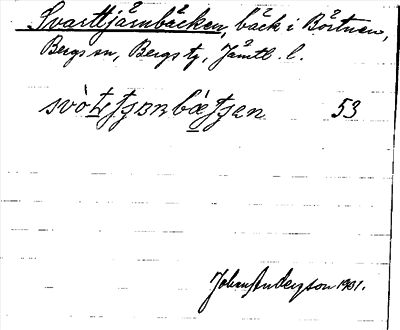 Svarttjärnbäcken, bäck i Börtnen,
Bergs sn, Bergs tg, Jämtl. l.
53
Johan Anderzson 1931.